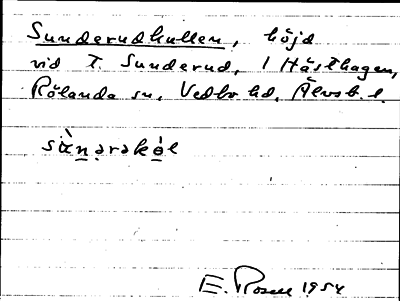 Sunderudkullen, höjd
vid T. Sunderud, 1 Hästhagen,
Rölanda sn, Vedbo hd, Älvsb. l.
sɯ̀nərəkòl
E. Rosell 1954